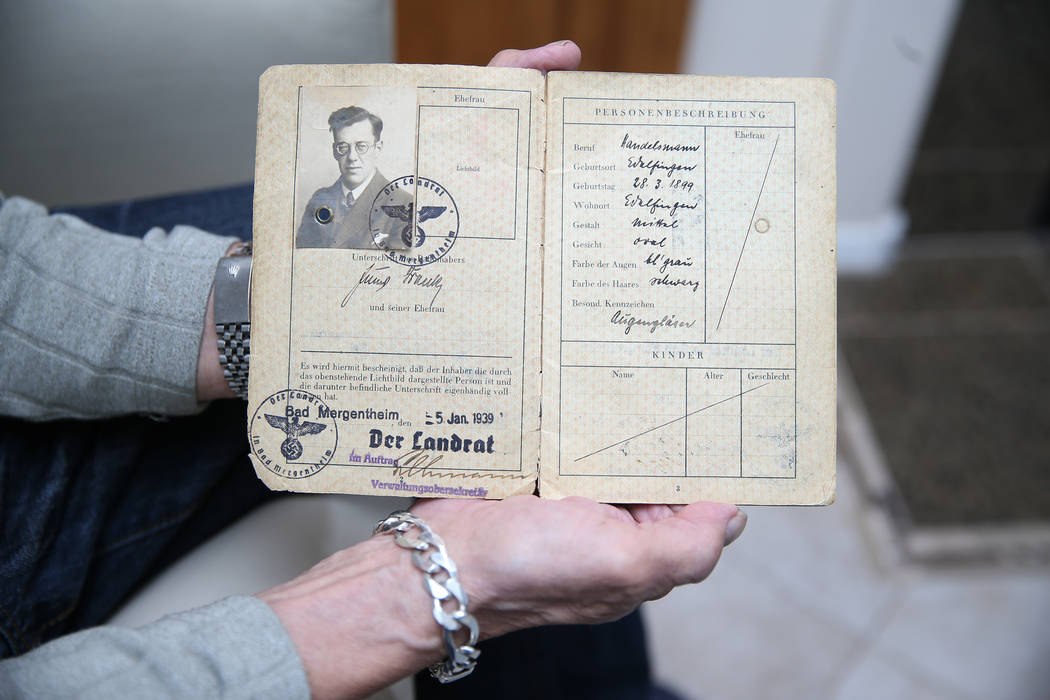 Ehefrau
Lichtbild
Der Landrat
in Bad Mergentheim
Unterschrift des Inhabers
Frank
und seiner Ehefrau
Es wird hiermit bescheinigt, daß der Inhaber die durch
das obenstehende Lichtbild dargestellte Person ist und
die darunter befindliche Unterschrift eigenhändig voll
en hat.
Bad Mergentheim, den -5. Jan. 1939
Der Landrat
Im Auftrag
Verwaltungsobersekretär
Der Landrat
in Bad Mergentheim
PERSONENBESCHREIBUNG
Ehefrau
Beruf Handelsmann
Geburtsort Edelfingen
Geburtstag 28. 3. 1899
Wohnort Edelfingen
Gestalt mittel
Gesicht oval
Farbe der Augen bl'grau
Farbe des Haares schwarz
Besond. Kennzeichen
Augengläser
KINDER
Name Alter Geschlecht
3